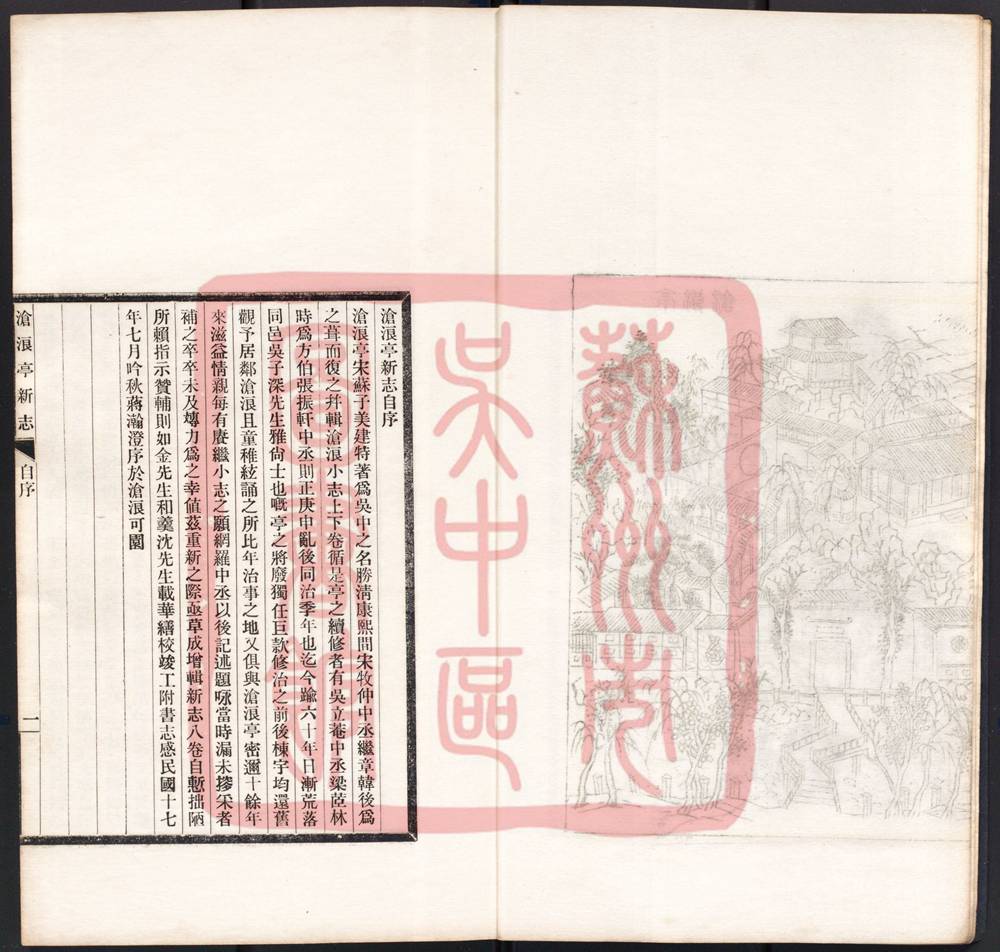 滄浪亭新志自序
滄浪亭宋蘇子美建特著爲吳中之名勝清康熙間宋牧仲中丞繼章韓後爲
之葺而復之幷輯滄浪小志上下卷循是亭之續修者有吳立菴中丞梁茝林
時爲方伯張振軒中丞則正庚申亂後同治季年也迄今踰六十年日漸荒落
同邑吳子深先生雅尙士也嘅亭之將廢獨任巨款修治之前後棟宇均還舊
觀予居鄰滄浪且童稚絃誦之所比年治事之地又俱與滄浪亭密邇十餘年
來滋益情親每有賡繼小志之願網羅中丞以後記述題咏當時漏未摉采者
補之卒卒未及竱力爲之幸値茲重新之際亟草成增輯新志八卷自慙拙陋
所賴指示贊輔則如金先生和羹沈先生載華繕校竣工附書志感民國十七
年七月吟秋蔣瀚澄序於滄浪可園
滄浪亭新志
自序
一
蘇州市
吳中區